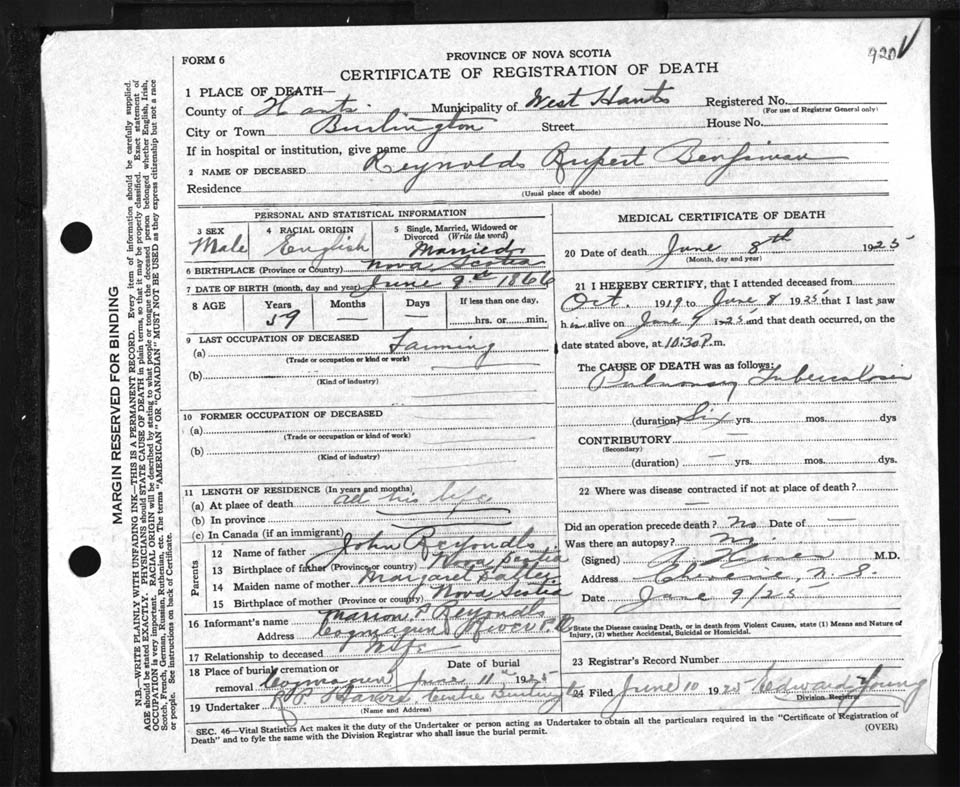 920 V
FORM 6
PROVINCE OF NOVA SCOTIA
CERTIFICATE OF REGISTRATION OF DEATH
1 PLACE OF DEATH—
County of Hants Municipality of West Hants Registered No.
(For use of Registrar General only)
City or Town Burlington Street House No.
If in hospital or institution, give name
2 NAME OF DECEASED Reynolds Rupert
Residence
(Usual place of abode)
PERSONAL AND STATISTICAL INFORMATION
3 SEX 4 RACIAL ORIGIN 5 Single, Married, Widowed or Divorced (Write the word)
Male English Married
6 BIRTHPLACE (Province or Country) Nova Scotia
7 DATE OF BIRTH (month, day and year) June 1866
8 AGE Years Months Days If less than one day,
59 — — hrs. or min.
9 LAST OCCUPATION OF DECEASED
(a) Farming
(Trade or occupation or kind or work)
(b)
(Kind of industry)
10 FORMER OCCUPATION OF DECEASED
(a)
(Trade or occupation or kind of work)
(b)
(Kind of industry)
11 LENGTH OF RESIDENCE (In years and months)
(a) At place of death all his life
(b) In province
(c) In Canada (if an immigrant)
Parents
12 Name of father John Reyondls
13 Birthplace of father (Province or country) Nova Scotia
14 Maiden name of mother Margaret
15 Birthplace of mother (Province or country) Nova Scotia
16 Informant's name Marion P Reyondls
Address Cogmagun River
17 Relationship to deceased Wife
18 Place of burial, cremation or removal Cogmagun Date of burial June 11th 1925
19 Undertaker Centre Burlington
(Name and Address)
MEDICAL CERTIFICATE OF DEATH
20 Date of death June 8th 1925
(Month, day and year)
21 I HEREBY CERTIFY, that I attended deceased from
Oct. 1919 to June 8 1925 that I last saw
him alive on June 1925 and that death occurred, on the
date stated above, at 10:30 P. m.
The CAUSE OF DEATH was as follows:
Pulmonary Tuberculosis
(duration) Six yrs. mos. dys
CONTRIBUTORY —
(Secondary)
(duration) — yrs. mos. dys.
22 Where was disease contracted if not at place of death?
—
Did an operation precede death? No Date of —
Was there an autopsy?
(Signed) M.D.
Address Cheverie, N.S.
Date June 9/25
State the Disease causing Death, or in death from Violent Causes, state (1) Means and Nature of Injury, (2) whether Accidental, Suicidal or Homicidal.
23 Registrar's Record Number
24 Filed June 10 1925 Edward Young
Division Registrar
SEC. 46—Vital Statistics Act makes it the duty of the Undertaker or person acting as Undertaker to obtain all the particulars required in the "Certificate of Registration of
Death" and to fyle the same with the Division Registrar who shall issue the burial permit.
(OVER)
MARGIN RESERVED FOR BINDING
N.B.—WRITE PLAINLY WITH UNFADING INK—THIS IS A PERMANENT RECORD. Every item of information should be carefully supplied.
AGE should be stated EXACTLY. PHYSICIANS should STATE CAUSE OF DEATH in plain terms, so that it may be properly classified. Exact statement of
OCCUPATION is very important. RACIAL ORIGIN will be described by stating to what people or tongue the deceased person belonged whether English, Irish,
Scotch, French, German, Russian, Ruthenian, etc. The terms "AMERICAN" OR "CANADIAN" MUST NOT BE USED as they express citizenship but not a race
or people. See instructions on back of Certificate.